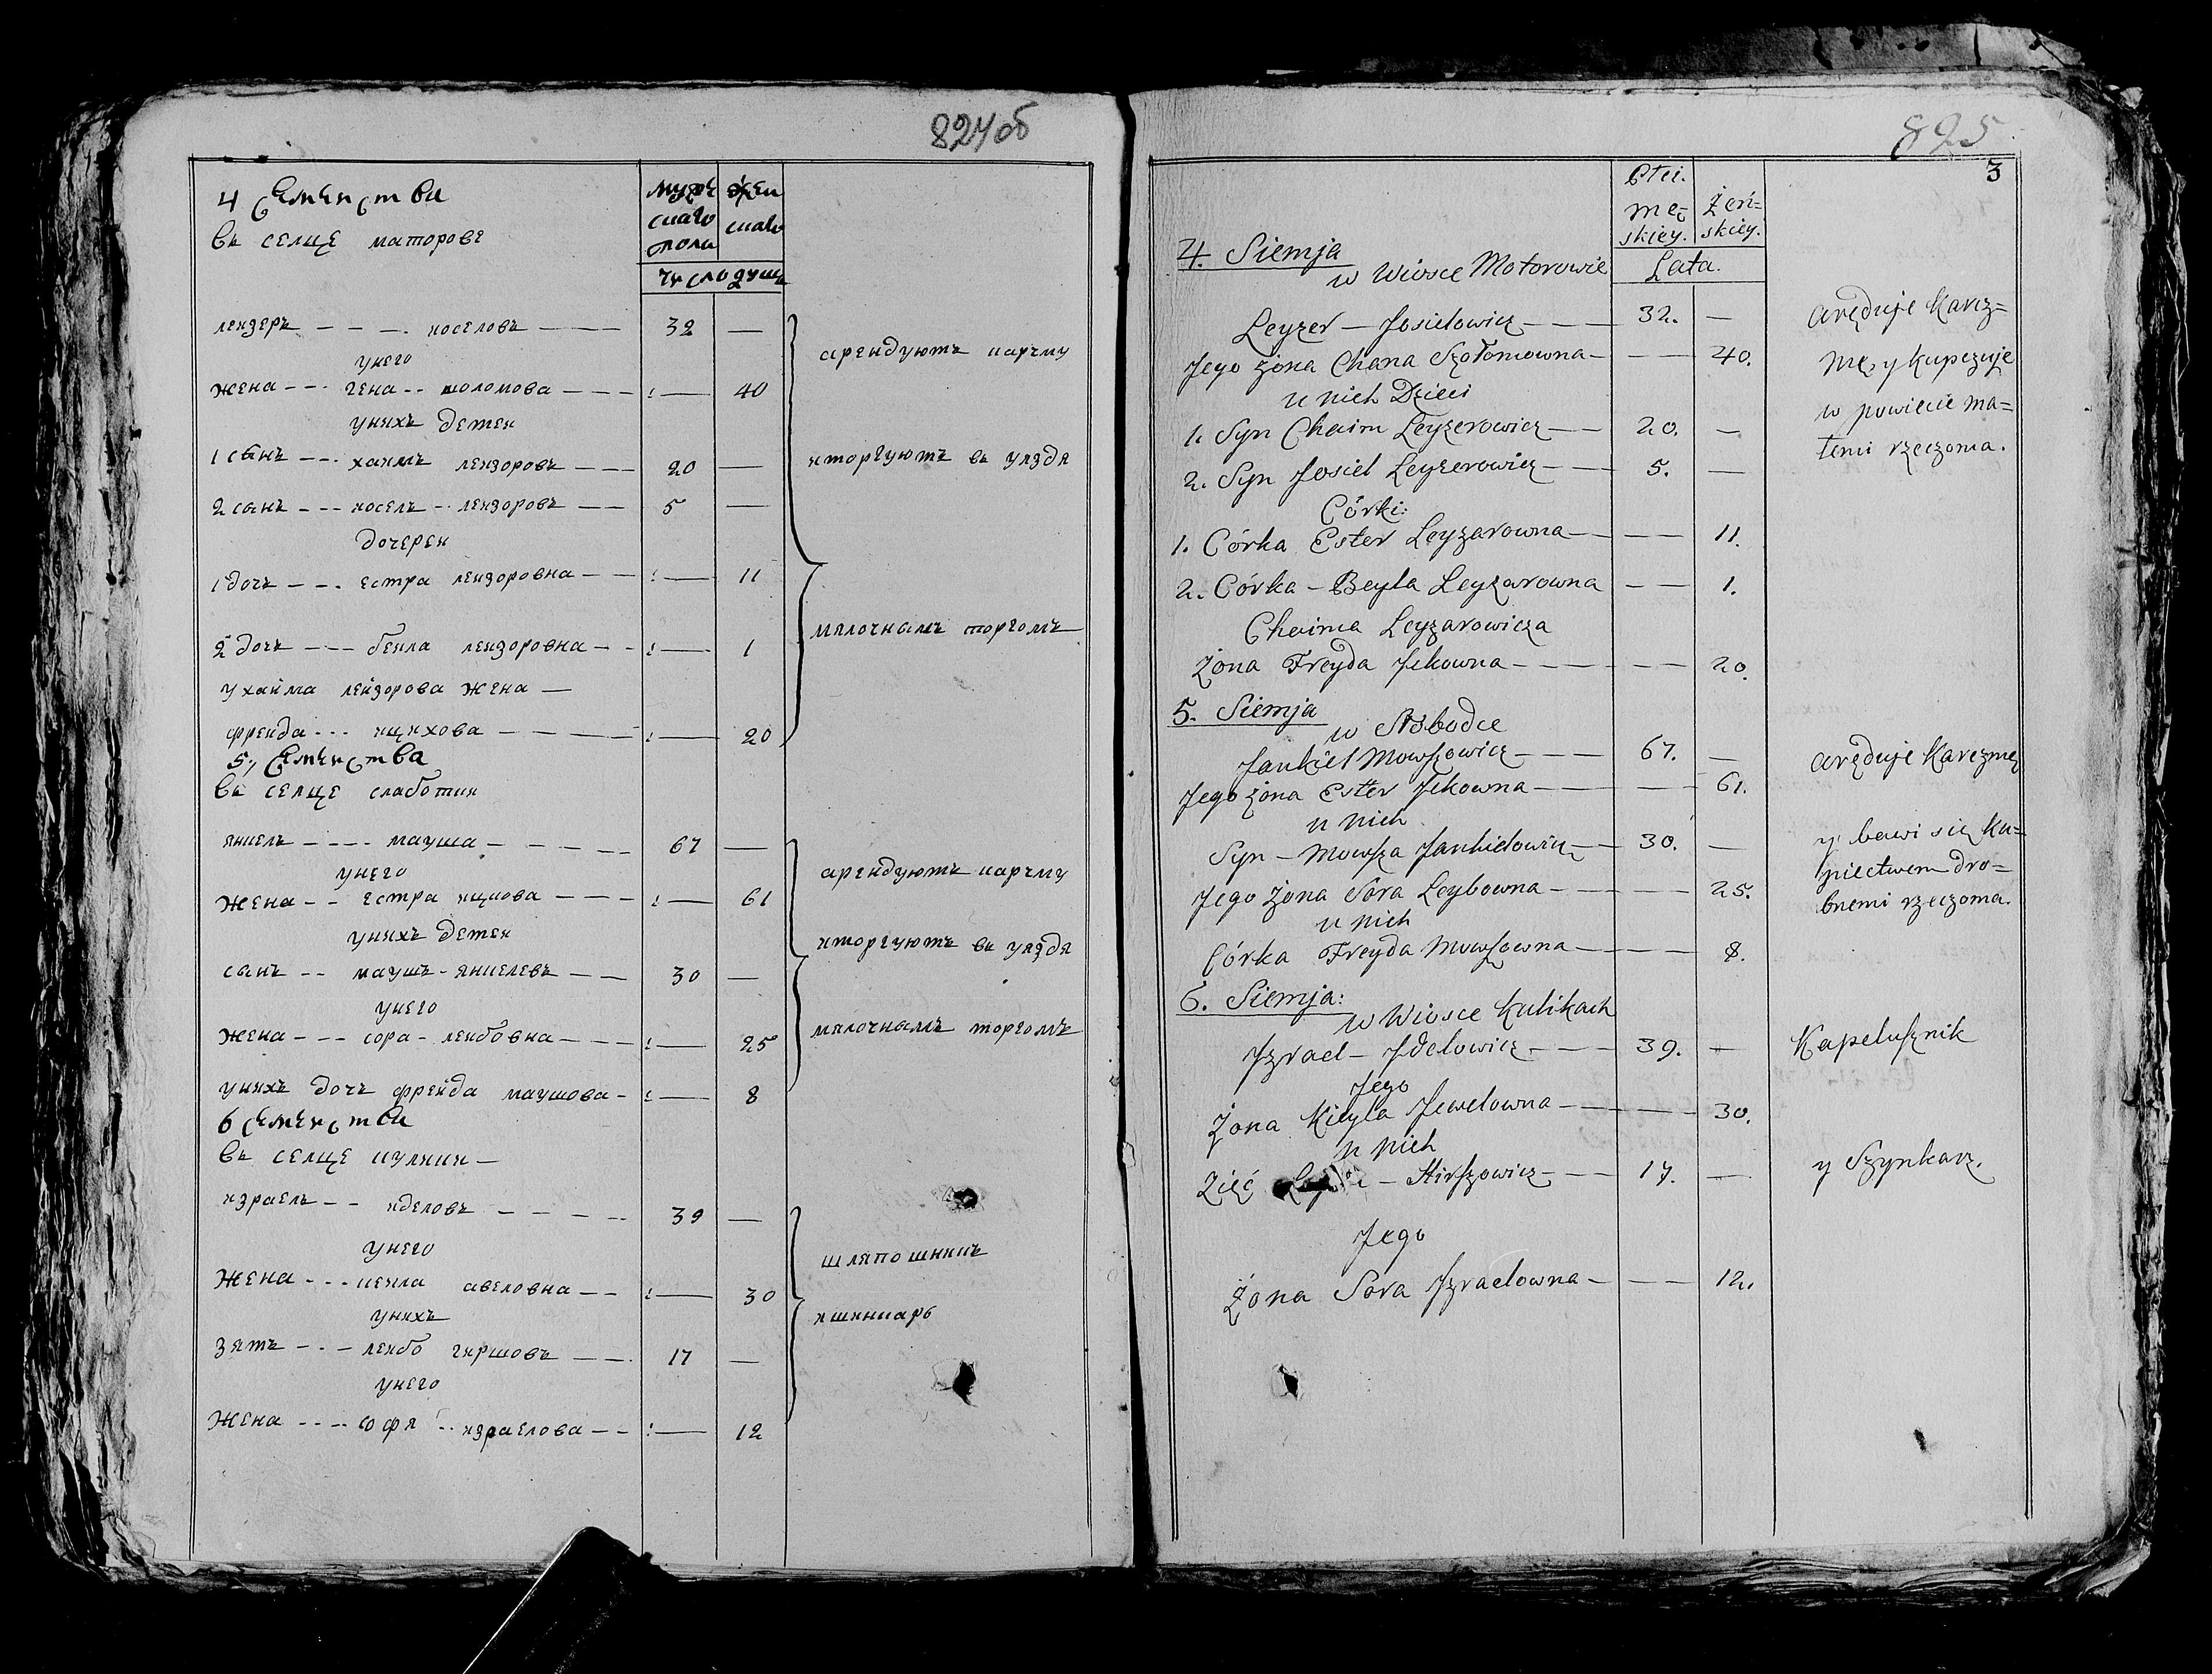 824об
4 Семейства
въ селце маторове
мужескаго пола
женскаго
число душъ
лейзеръ – – – иоселовъ – – – 32 —
унего
жена – – – гена – – шоломова – – – : — 40
унихъ детей
1 сынъ – – – хаимъ лейзоровъ – – – 20 —
2 сынъ – – – иоселъ – – лейзоровъ – – 5 —
дочерей
1 дочь – – – естра лейзоровна – – : — 11
2 дочь – – – бейла лейзоровна – – : — 1
у хайма лейзорова жена —
фрейда – – – ицкхова – – – – : — 20
арендуютъ карчму
иторгуютъ въ уязде
мялочнымъ торгомъ
5, Семейства
въ селце слаботки
янкелъ – – – – мауша – – – – – 67 —
унего
жена – – естра ицкова – – – : — 61
унихъ детей
сынъ – – маушъ – янкелевъ – – 30 —
унего
жена – – – сора – лейбовна – – – : — 25
унихъ дочь фрейда маушова – : — 8
арендуютъ карчму
иторгуютъ въ уязде
мялочнымъ торгомъ
6 Семейства
въ селце кулики —
израель – – иделовъ – – – – – 39 —
унего
жена – – – кейла авеловна – – : — 30
унихъ
зять – – – лейбо гиршовъ – – – 17 —
унего
жена – – – – софя – – израелова – – : — 12
шляпошникъ
ишинкарь
825
3
Płci.
mę=
skiey.
żeń=
skiey.
Lata.
4. Siemja
w Wiosce Motorowie
Leyzer – Josielowicz – – – 32. —
Jego żona Chana Szołomowna – – – 40.
u nich Dzieci
1. Syn Chaim Leyzerowicz – – 20. —
2. Syn Josiel Leyzerowicz – – 5. —
Córki:
1. Córka Ester Leyzarowna – – – – 11.
2. Córka – Beyla Leyzarowna – – 1.
Chaima Leyzarowicza
żona Freyda Jckowna – – – – – 20.
aręduje Karcz=
mę, y kupczuje
w powiecie ma=
łemi rzeczoma.
5. Siemja
w Słobodce
Jankiel Mowszowicz – – – 67. —
Jego żona Ester Jckowna – – – – 61.
u nich
Syn – Mowsza Jankielowicz – – 30. —
Jego żona Sora Leybowna – – – – 25.
u nich
Córka Freyda Mowszowna – – – 8.
aręduje Karczmę
y bawi się Ku=
piectwem dro=
bnemi rzeczoma.
6. Siemja:
w Wiosce Kulikach
Jzrael – Jdelowicz – – – 39. —
Jego
żona Kieyla Jewelowna – – – – 30.
u nich
Zięć – Hirszowicz – – 17. —
Jego
Żona Sora Jzraelowna – – – 12.
Kapelusznik
y Szynkarz.